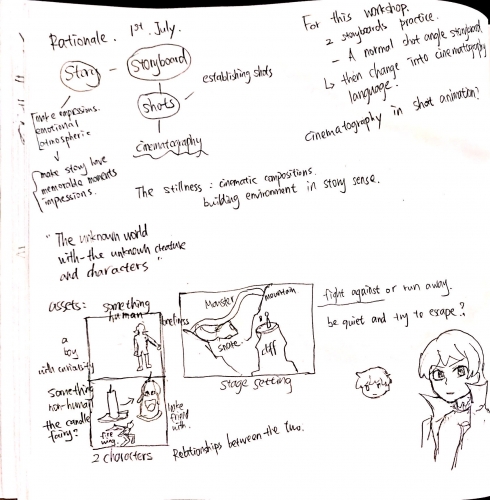 Rationale. 1st. July.
Story
Storyboard
shots
establishing shots
cinematography
make expressions.
emotional
atmospheric
make story have
memorable moments
impressions.
For this workshop.
2 storyboards practice.
- A normal shot angle storyboard
↳ then change into cinematography
language.
Cinematography in shot animation?
The stillness : cinematic compositions.
building environment in story sense.
"The unknown world
with the unknown creature
and characters"
assets:
something
human
loneliness
a
boy
with curiosity
something
non-human
the candle
fairy?
fire
wing.
make
friend
with.
2 characters
Relationships between the two.
Monster
mountain
snake
cliff
Stage setting
fight against or run away.
be quiet and try to escape?